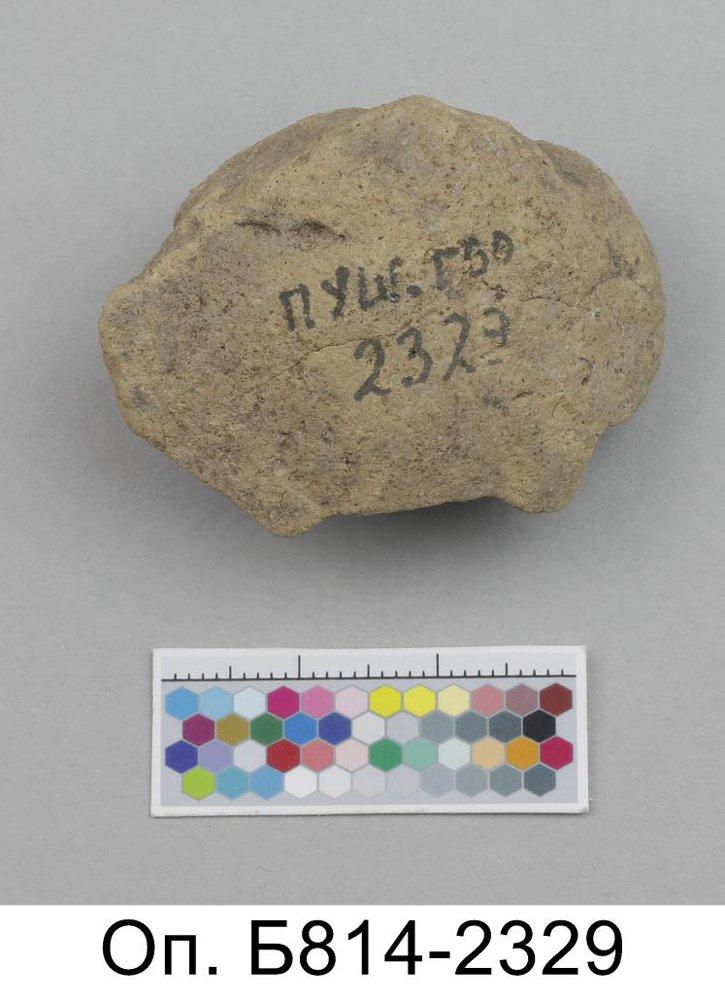 ПУШ. Б50
2329
Оп. Б814-2329